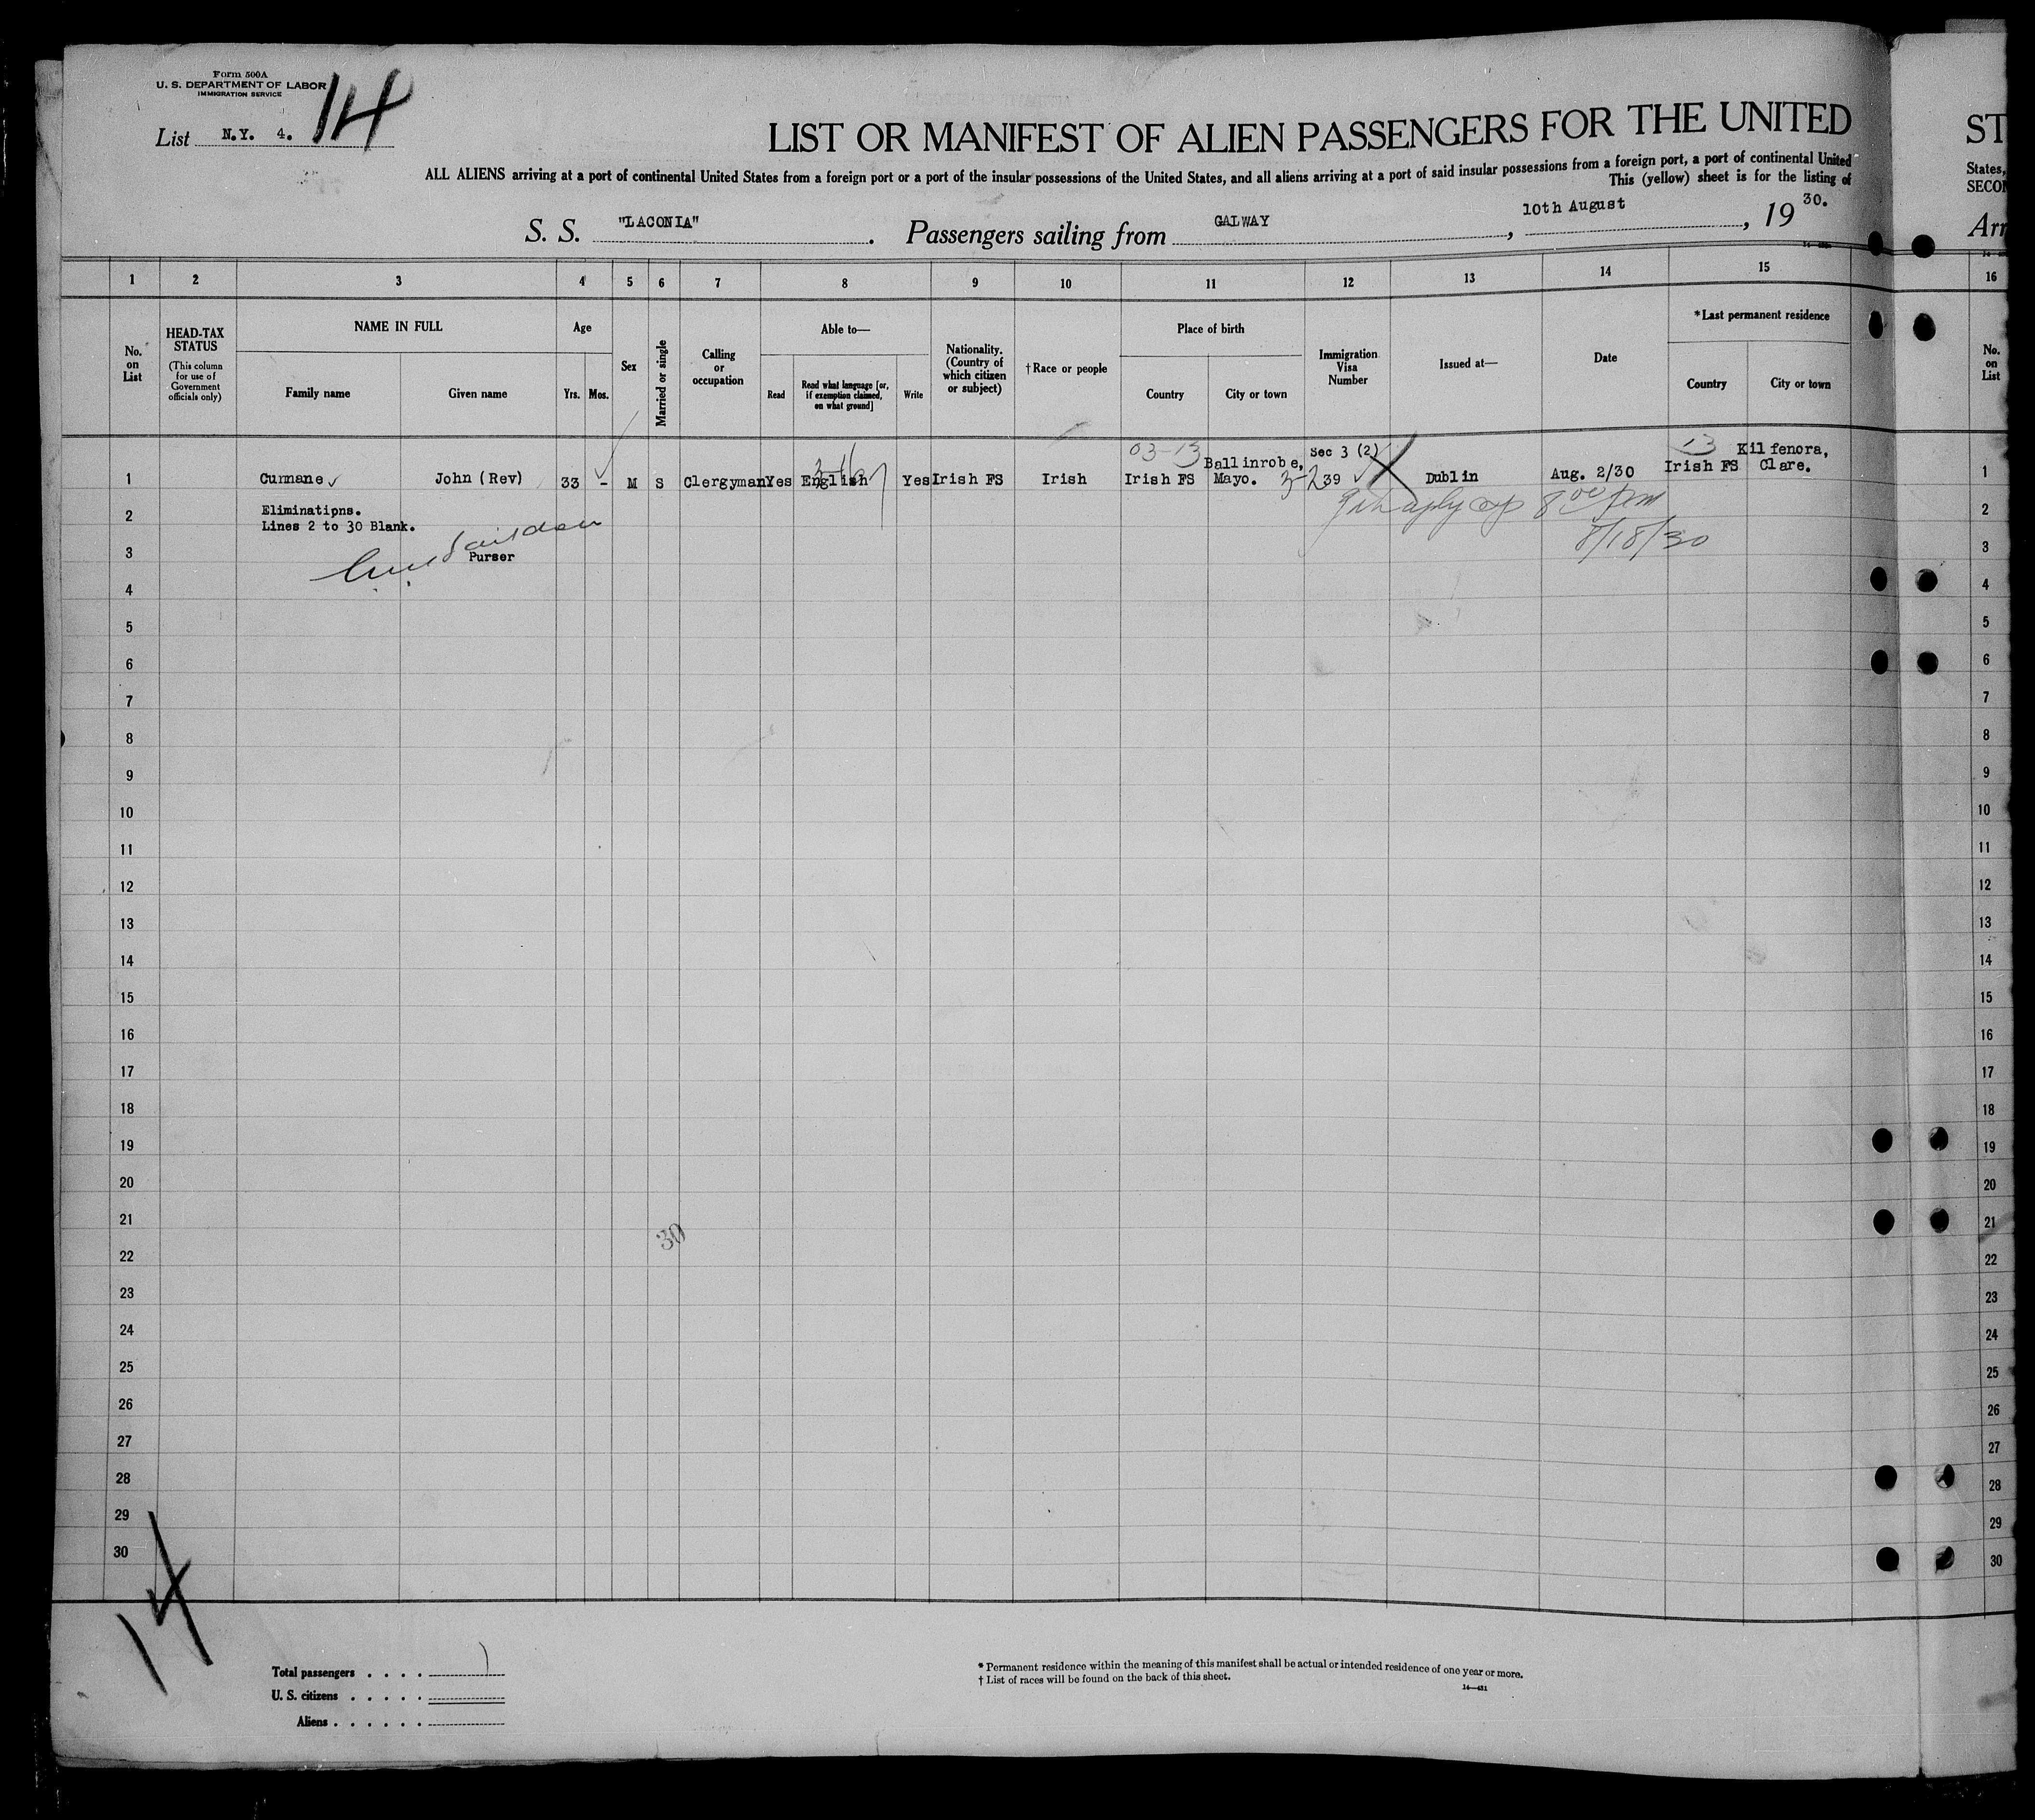 Form 500A
U. S. DEPARTMENT OF LABOR
IMMIGRATION SERVICE
List N.Y. 4. 14
LIST OR MANIFEST OF ALIEN PASSENGERS FOR THE UNITED
ST
ALL ALIENS arriving at a port of continental United States from a foreign port or a port of the insular possessions of the United States, and all aliens arriving at a port of said insular possessions from a foreign port, a port of continental United
States,
This (yellow) sheet is for the listing of
SECO
S. S. "LACONIA". Passengers sailing from GALWAY, 10th August, 1930.
Arr
1 2 3 4 5 6 7 8 9 10 11 12 13 14 15 16
No. on List
HEAD-TAX STATUS
(This column for use of Government officials only)
NAME IN FULL
Family name
Given name
Age
Yrs. Mos.
Sex
Married or single
Calling or occupation
Able to—
Read
Read what language [or, if exemption claimed, on what ground]
Write
Nationality. (Country of which citizen or subject)
†Race or people
Place of birth
Country
City or town
Immigration Visa Number
Issued at—
Date
*Last permanent residence
Country
City or town
No. on List
03-13 Sec 3 (2) 13
1 Curnane John (Rev) 33 - M S Clergyman Yes English Yes Irish FS Irish Irish FS Ballinrobe, Mayo. 239 Dublin Aug. 2/30 Irish FS Kilfenora, Clare. 1
2 Eliminations. 2
Lines 2 to 30 Blank.
8/18/30
3 Purser 3
4 4
5 5
6 6
7 7
8 8
9 9
10 10
11 11
12 12
13 13
14 14
15 15
16 16
17 17
18 18
19 19
20 20
21 21
30
22 22
23 23
24 24
25 25
26 26
27 27
28 28
29 29
30 30
14
Total passengers . . . . 1
U. S. citizens . . . . .
Aliens . . . . . .
* Permanent residence within the meaning of this manifest shall be actual or intended residence of one year or more.
† List of races will be found on the back of this sheet.
14—431